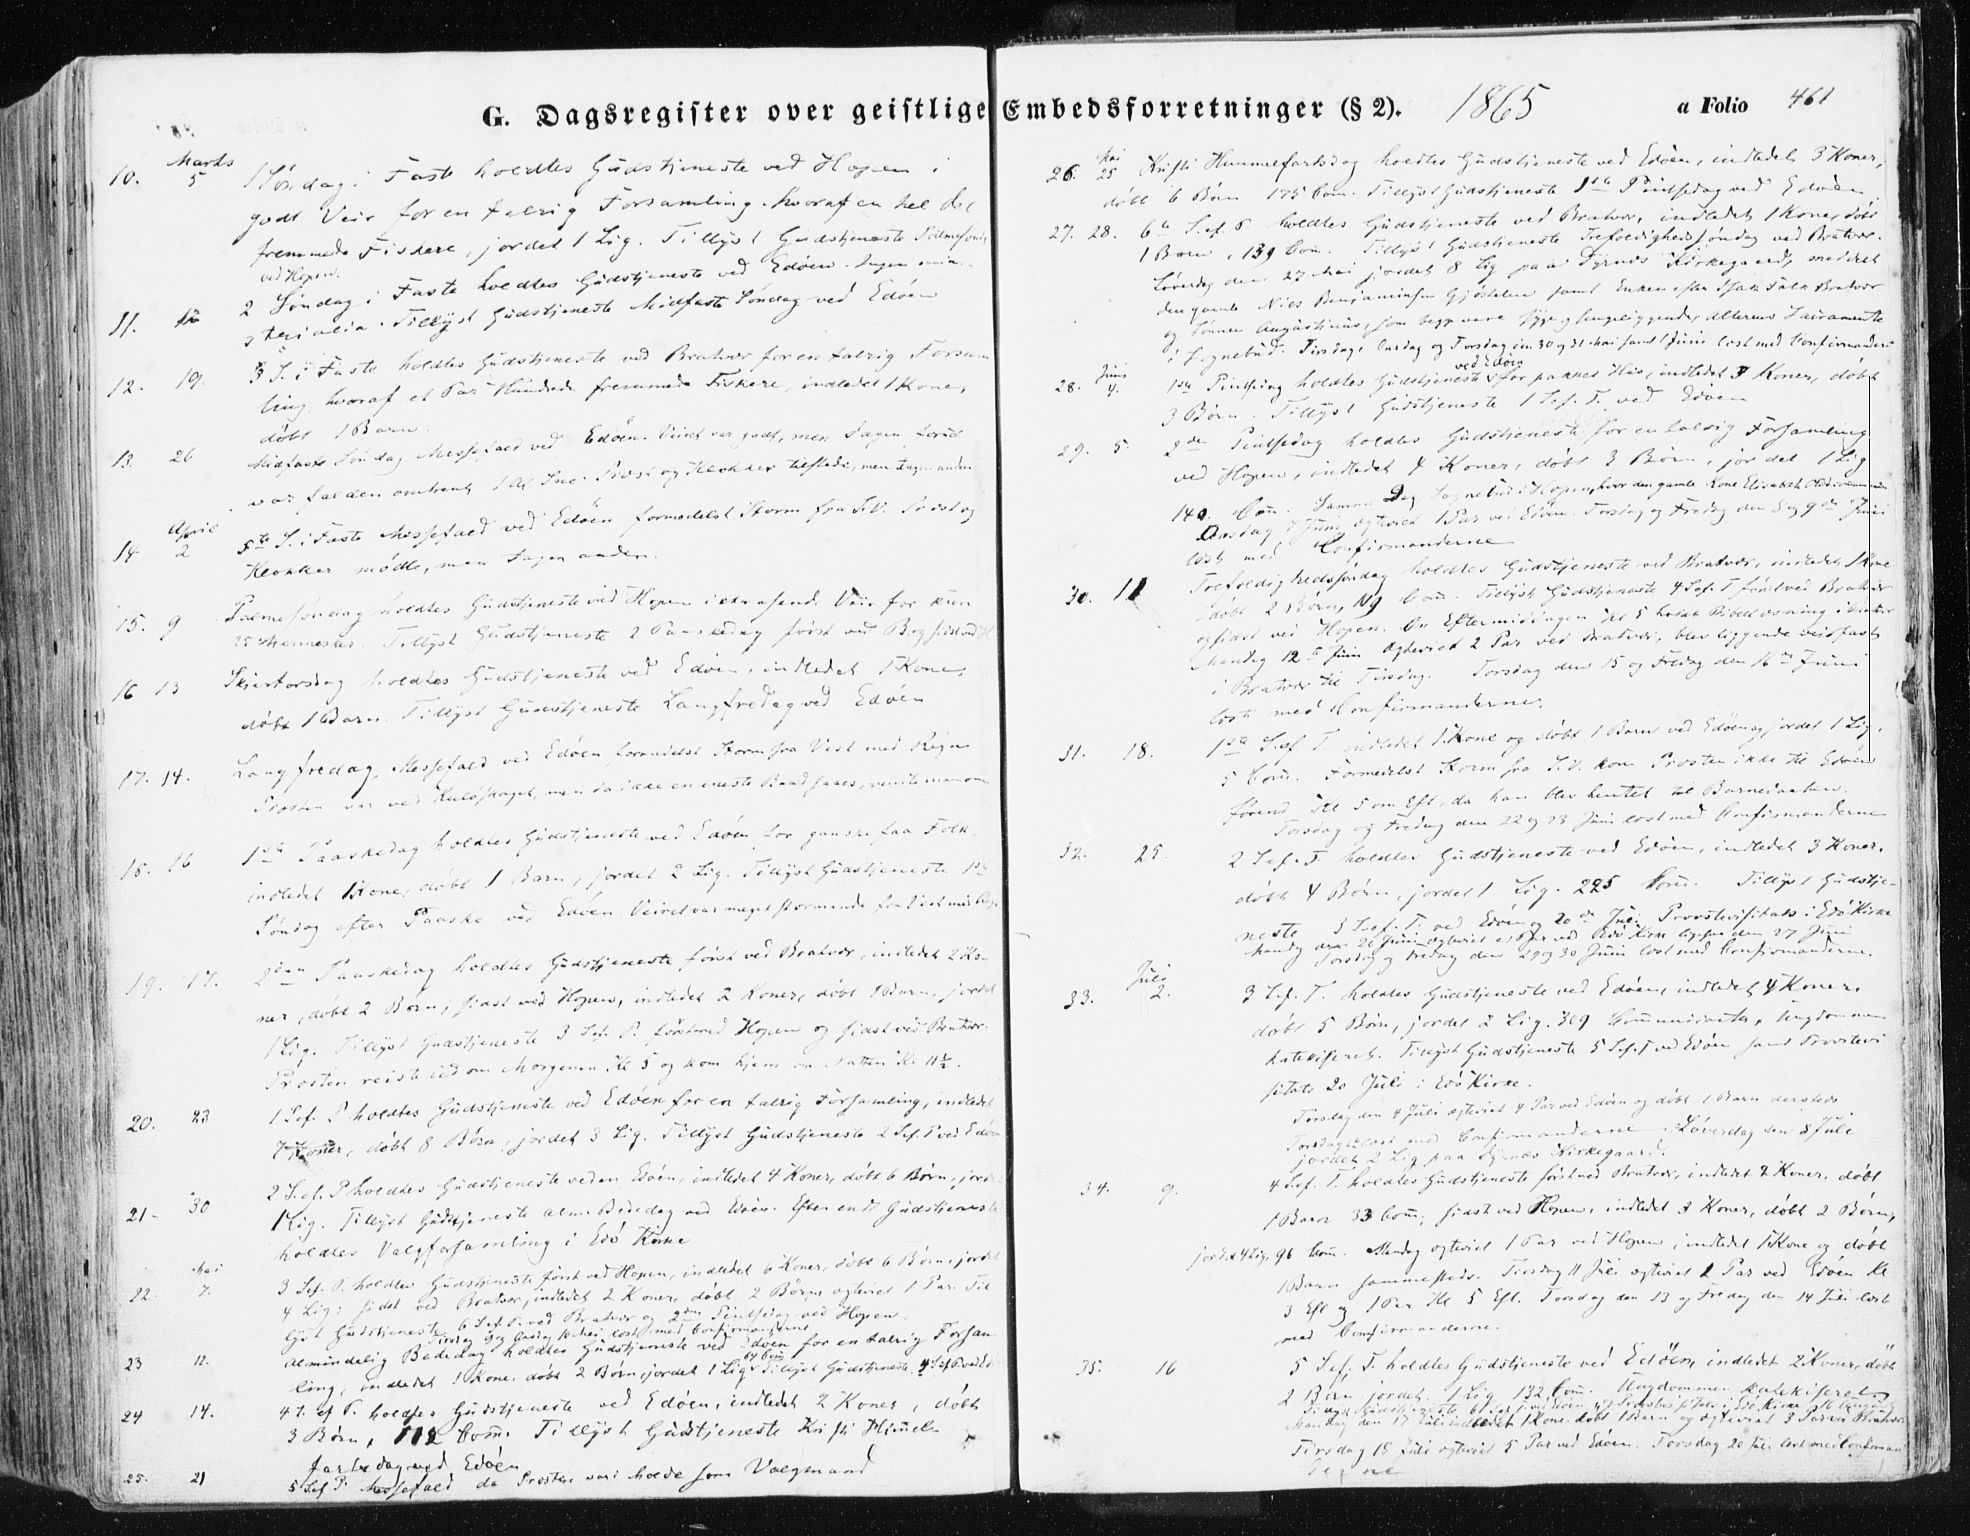 G. Dagsregister over geistlige Embedsforretninger (§ 2). 1865 a Folio 461
Marts
10. 5 1 Søndag i Faste holdtes Gudstjeneste ved Hopen i
godt Veir for en talrig Forsamling hvoraf en hel Del
fremmede Fiskere, jordet 1 Lig. Tillyst Gudstjeneste Palmesønd.
ved Hopen.
11. 12 2 Søndag i Faste holdtes Gudstjeneste ved Edøen. Ingen mini-
sterialia. Tillyst Gudstjeneste Midfaste Søndag ved Edøen
12. 19. 3 S. i Faste holdtes Gudstjeneste ved Bratvær for en talrig Forsam
ling, hvoraf et Par Hundrede fremmede Fiskere, indledet 1 Kone,
døbt 1 Barn.
13. 26 Midfaste Søndag Messefald ved Edøen. Veiret var godt, men Dagen forud
var falden omtrent 1 Al Sne. Prost og Klokker tilstede, men Ingen anden
April
14 2 5te S. i Faste Messefald ved Edøen formedelst Storm fra S.V. Prost og
Klokker mødte, men Ingen anden.
15. 9 Palmesøndag holdtes Gudstjeneste ved Hopen i Veir for kun
25 Mennesker. Tillyst Gudstjeneste 2 Paaskedag først ved B. og sidst ved H
16 13 Skjærtorsdag holdtes Gudstjeneste ved Edøen, indledet 1 Kone,
døbt 1 Barn. Tillyst Gudstjeneste Langfredag ved Edøen
17. 14. Langfredag, Messefald ved Edøen formedelst Storm fra Vest med Regn
Prosten var ved, men da ikke en eneste Baad saaes, vendte man om
18. 16 1ste Paaskedag holdtes Gudstjeneste ved Edøen for ganske faa Folk,
indledet 1 Kone, døbt 1 Barn, jordet 2 Lig. Tillyst Gudstjeneste 1ste
Søndag efter Paaske ved Edøen. Veiret var meget stormende fra Vest med Regn
19. 17. 2den Paaskedag holdtes Gudstjeneste først ved Bratvær, indledet 2 Ko-
ner, døbt 2 Børn; sidst ved Hopen, indledet 2 Koner, døbt 1 Barn, jordet
1 Lig. Tillyst Gudstjeneste 3 S.ef. P. først ved Hopen og sidst ved Bratvær.
Prosten reiste ud om Morgenen Kl 5 og kom hjem om Natten Kl. 11½.
20. 23 1 S.ef. P holdtes Gudstjeneste ved Edøen for en talrig Forsamling, indledet
7 Koner, døbt 8 Børn, jordet 3 Lig. Tillyst Gudstjeneste 2 S.ef. P ved Edøen
21. 30 2 S.ef. P holdtes Gudstjeneste ved Edøen, indledet 4 Koner, døbt 6 Børn, jordet
1 Lig. Tillyst Gudstjeneste alm. Bededag ved Edøen. Efter endt Gudstjeneste
holdtes Valgforsamling i Edø Kirke
Mai
22. 7. 3 S.ef. P. holdtes Gudstjeneste først ved Hopen, indledet 6 Koner, døbt 6 Børn, jordet
4 Lig; sidst ved Bratvær, indledet 2 Koner, døbt 2 Børn, ægteviet 1 Par. Til
lyst Gudstjeneste 6 S.ef. P. ved Bratvær og 2den Pintsedag ved Hopen.
Tirsdag 9 og Onsdag 10 Mai læst med Confirmanderne
23 12. Almindelig Bededag holdtes Gudstjeneste ved Edøen for en talrig Forsam
ling, indledet 1 Kone, døbt 2 Børn, jordet 1 Lig, 64 Com. Tillyst Gudstjeneste 4 S.ef P ved Edø
24 14. 4 S. ef P. holdtes Gudstjeneste ved Edøen, indledet 2 Koner, døbt
3 Børn, 112 Com. Tillyst Gudstjeneste Kristi Himmel-
fartsdag ved Edøen
25. 21 5 S.ef P. Messefald da Prosten var i Molde som Valgmand
Mai
26. 25 Kristi Himmelfartsdag holdtes Gudstjeneste ved Edøen, indledet 3 Koner,
døbt 6 Børn 175 Com. Tillyst Gudstjeneste 1ste Pintsedag ved Edøen
27. 28. 6te S.ef P. holdtes Gudstjeneste ved Bratvær, indledet 1 Kone, døbt
1 Barn, 139 Com. Tillyst Gudstjeneste Trefoldighedssøndag ved Bratvær.
Løverdag den 27 Mai jordet 8 Lig paa Tyrnæs Kirkegaard, meddelt
den gamle Niels Benjaminsen samt Enken efter Isak Falk Bratvær
og Sønnen Augustinus, som begge vare syge og sengeliggende, Alterens Sacramente
i Sognebud. Tirsdag, Onsdag og Torsdag den 30 og 31 Mai samt 1 Juni læst med Confirmanderne
Juni
28. 4. 1ste Pintsedag holdtes Gudstjeneste ved Edøen for pakket Hus, indledet 3 Koner, døbt
3 Børn. Tillyst Gudstjeneste 1 S.ef. T. ved Edøen
29. 5. 2den Pintsedag holdtes Gudstjeneste for en talrig Forsamling
ved Hopen, indledet 4 Koner, døbt 3 Børn, jordet 1 Lig
140. Com. Samme Dag Sognebud i Hopen, hvor den gamle Kone Elisabeth
Onsdag 7 Juni ægteviet 1 Par ved Edøen. Torsdag og Fredag den 8 og 9de Juni
læst med Confirmanderne
30. 11 Trefoldighedssøndag holdtes Gudstjeneste ved Bratvær, indledet 1 Kone
døbt 2 Børn, 109 Com. Tillyst Gudstjeneste 4 S.ef. T først ved Bratvær
og sidst ved Hopen. Om Eftermiddagen Kl 5 holdt Bibellæsning i
Mandag 12te Juni ægteviet 2 Par ved Bratvær, blev liggende veirfast
i Bratvær til Tirsdag. Torsdag den 15 og Fredag den 16de Juni
læst med Confirmanderne.
31. 18. 1ste S.ef T indledet 1 Kone og døbt 1 Barn ved Edøen og jordet 1 Lig,
5 Com. Formedelst Storm fra S.V. kom Prosten ikke til Edøen
førend Kl 5 om Eft, da han blev hentet til Barnedaaben.
Torsdag og Fredag den 22 og 23 Juni læst med Confirmanderne
32. 25. 2 S.ef. T. holdtes Gudstjeneste ved Edøen, indledet 3 Koner,
døbt 4 Børn, jordet 1 Lig. 225 Com. Tillyst Gudstje-
neste 3 S.ef. T. ved Edøen og 20de Juli Provstevisitats i Edø Kirke
Mandag den 26 Juni ægteviet et Par ved Edø Kirke ligesaa den 27 Juni
Torsdag og Fredag den 29 og 30 Juni læst med Confirmanderne.
Juli
33. 2. 3 S.ef. T. holdtes Gudstjeneste ved Edøen, indledet 4 Koner,
døbt 5 Børn, jordet 2 Lig. 309 Communicanter, Ungdommen
katekiseret. Tillyst Gudstjeneste 5 S.ef. T ved Edøen samt Provstevi
sitats 20 Juli i Edø Kirke.
Tirsdag den 4 Juli ægteviet 4 Par ved Edøen og døbt 1 Barn dersteds
Torsdag læst med Confirmanderne. Løverdag den 8 Juli
jordet 2 Lig paa Tyrnæs Kirkegaard.
34. 9. 4 S.ef. T. holdtes Gudstjeneste først ved Bratvær, indledet 2 Koner, døbt
1 Barn 33 Com; sidst ved Hopen, indledet 3 Koner, døbt 2 Børn,
jordet 4 Lig, 96 Com. Mandag ægteviet 1 Par ved Hopen, indledet 1 Kone og døbt
1 Barn sammesteds. Tirsdag 11 Juli ægteviet 1 Par ved Edøen Kl
3 Eft og 1 Par Kl 5 Eft. Torsdag den 13 og Fredag den 14 Juli læst
med Confirmanderne.
35. 16 5 S.ef. T. holdtes Gudstjeneste ved Edøen, indledet 2 Koner, døbt
2 Børn, jordet 1 Lig 132 Com. Ungdommen katekiseret.
Tillyst Gudstjeneste 6 S.ef T. ved Edøen og Provstevisitats i Edø Kirke
Mandag den 17 Juli indledet 1 Kone, døbt 1 Barn og ægteviet 3 Par ved Bratvær
Tirsdag 18 Juli ægteviet 5 Par ved Edøen. Torsdag 20 Juli læst med Confirman
derne